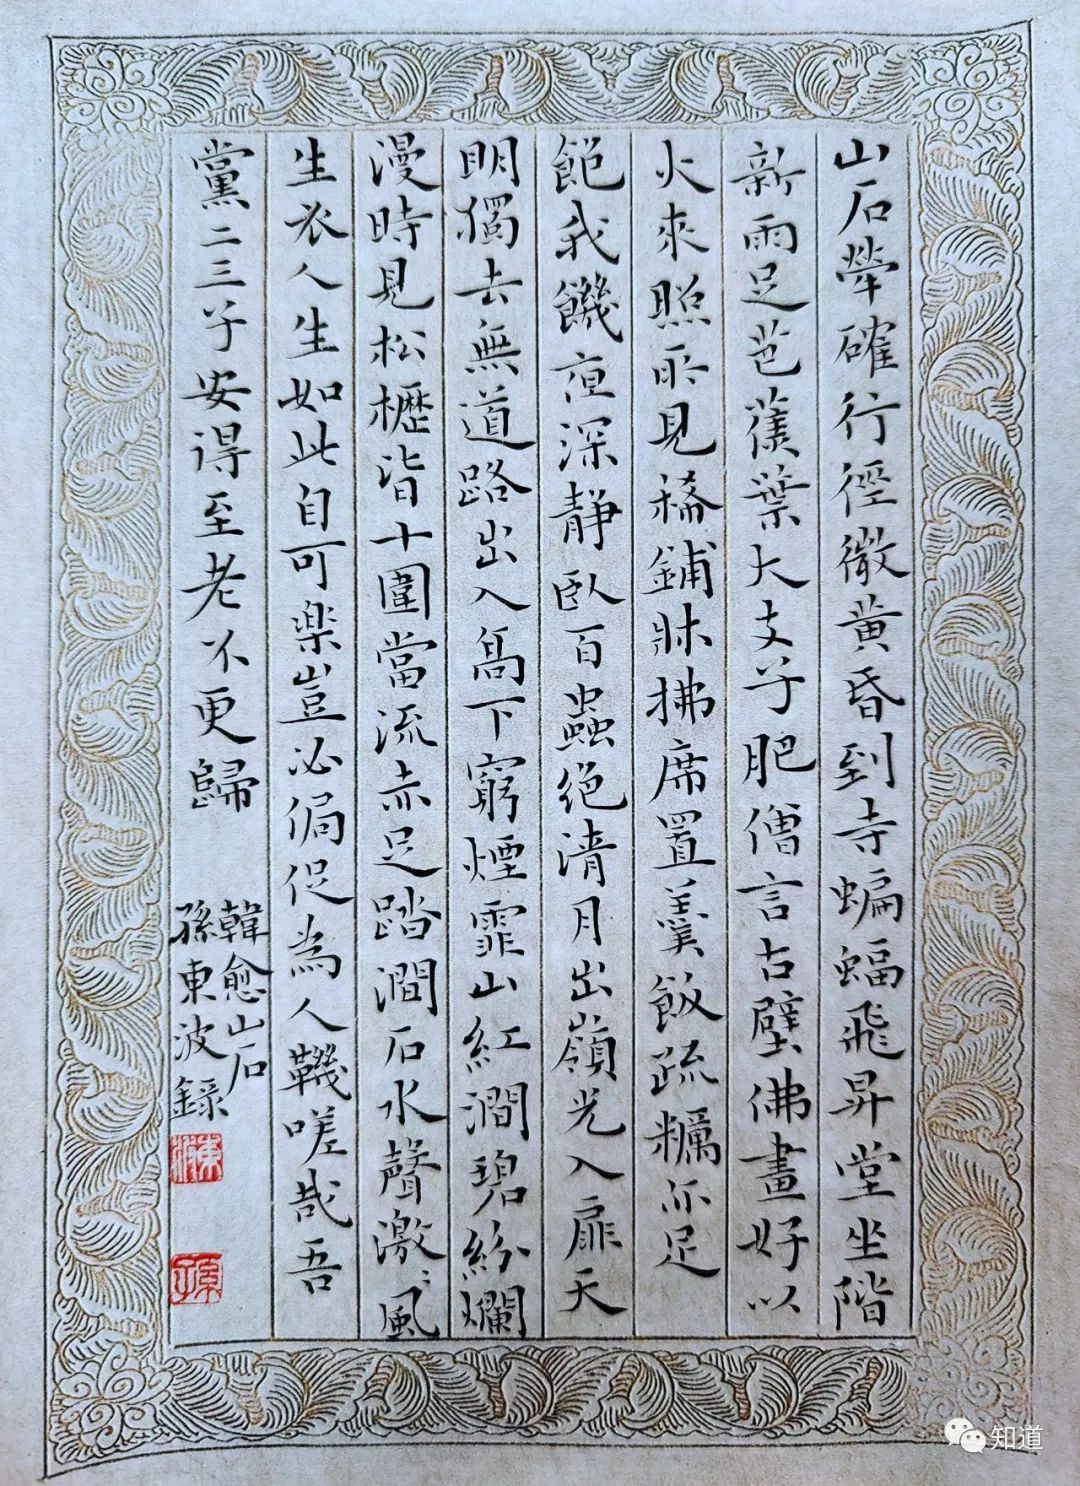 山石犖確行徑微黃昏到寺蝙蝠飛昇堂坐階
新雨足芭蕉葉大支子肥僧言古壁佛畫好以
火來照所見稀鋪牀拂席置羹飯疏糲亦足
飽我饑夜深靜臥百蟲絕清月出嶺光入扉天
明獨去無道路出入高下窮煙霏山紅澗碧紛爛
漫時見松櫪皆十圍當流赤足踏澗石水聲激〻風
生衣人生如此自可樂豈必侷促為人鞿嗟哉吾
黨二三子安得至老不更歸
韓愈山石
孫東波錄
知道